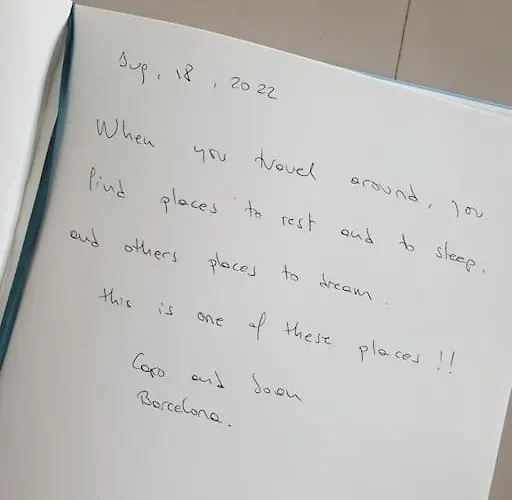 Sup, 18, 2022
When you travel around, you
find places to rest and to sleep.
and others places to dream.
this is one of these places !!
Caro and Joan
Barcelona.